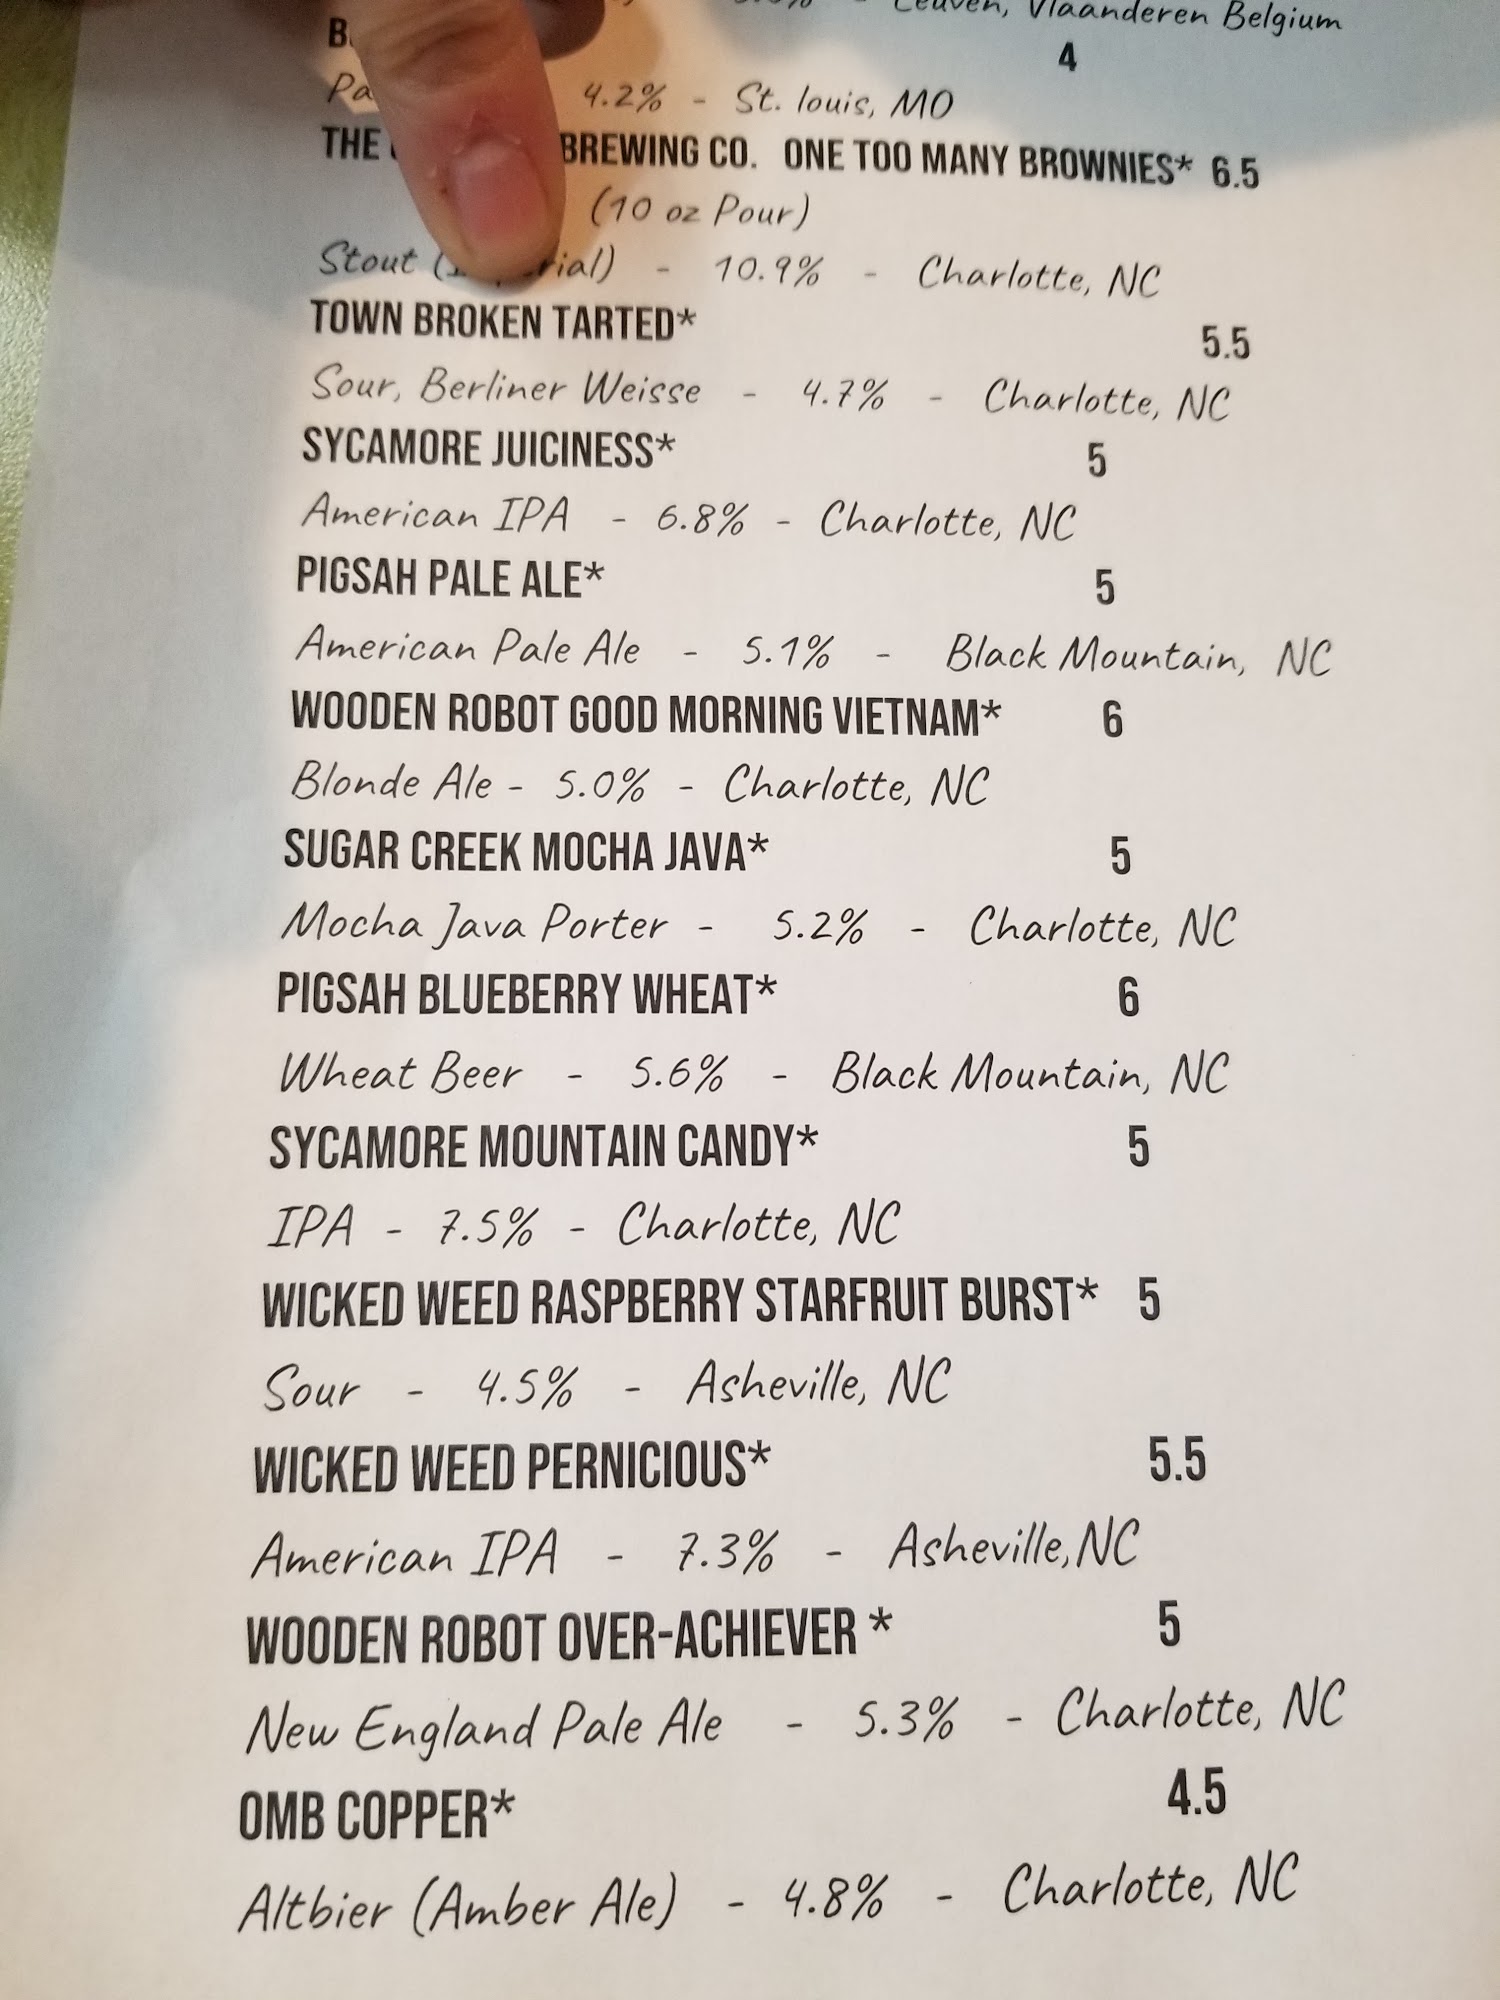 Leuven, Vlaanderen Belgium
4
4.2% - St. louis, MO
THE BREWING CO. ONE TOO MANY BROWNIES* 6.5
(10 oz Pour)
Stout - 10.9% - Charlotte, NC
TOWN BROKEN TARTED* 5.5
Sour, Berliner Weisse - 4.7% - Charlotte, NC
SYCAMORE JUICINESS* 5
American IPA - 6.8% - Charlotte, NC
PIGSAH PALE ALE* 5
American Pale Ale - 5.1% - Black Mountain, NC
WOODEN ROBOT GOOD MORNING VIETNAM* 6
Blonde Ale - 5.0% - Charlotte, NC
SUGAR CREEK MOCHA JAVA* 5
Mocha Java Porter - 5.2% - Charlotte, NC
PIGSAH BLUEBERRY WHEAT* 6
Wheat Beer - 5.6% - Black Mountain, NC
SYCAMORE MOUNTAIN CANDY* 5
IPA - 7.5% - Charlotte, NC
WICKED WEED RASPBERRY STARFRUIT BURST* 5
Sour - 4.5% - Asheville, NC
WICKED WEED PERNICIOUS* 5.5
American IPA - 7.3% - Asheville,NC
WOODEN ROBOT OVER-ACHIEVER * 5
New England Pale Ale - 5.3% - Charlotte, NC
OMB COPPER* 4.5
Altbier (Amber Ale) - 4.8% - Charlotte, NC